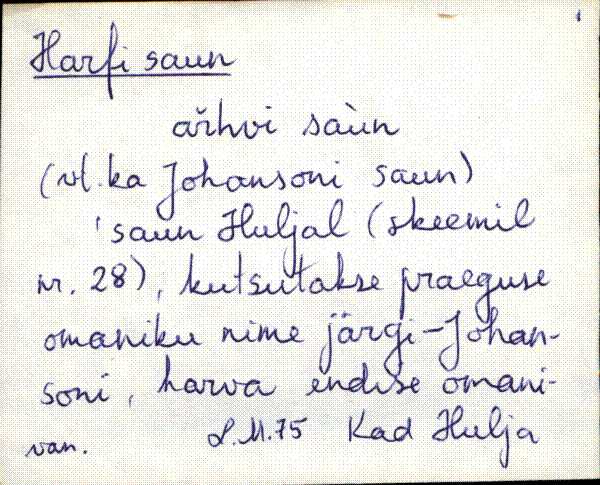 Harfi saun
ařhvi saùn
(vl. ka Johansoni saun)
'saun Huljal (skeemil
nr. 28), kutsutakse praeguse
omaniku nime järgi – Johan-
soni, harva endise omani-
van. L.M.75 Kad Hulja